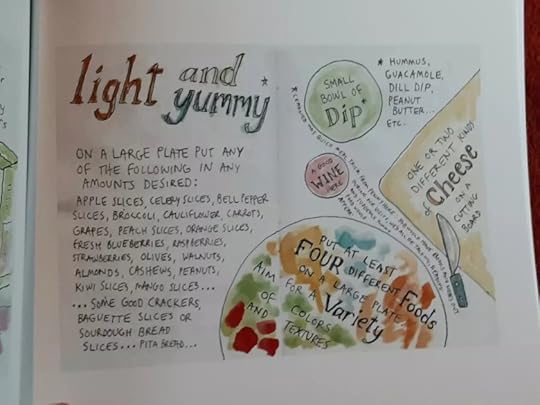 light and yummy*
ON A LARGE PLATE PUT ANY
OF THE FOLLOWING IN ANY
AMOUNTS DESIRED:
APPLE SLICES, CELERY SLICES, BELL PEPPER
SLICES, BROCCOLI, CAULIFLOWER, CARROTS,
GRAPES, PEACH SLICES, ORANGE SLICES,
FRESH BLUEBERRIES, RASPBERRIES,
STRAWBERRIES, OLIVES, WALNUTS,
ALMONDS, CASHEWS, PEANUTS,
KIWI SLICES, MANGO SLICES...
...SOME GOOD CRACKERS,
BAGUETTE SLICES OR
SOURDOUGH BREAD
SLICES... PITA BREAD...
SMALL
BOWL OF
DIP*
* HUMMUS,
GUACAMOLE,
DILL DIP,
PEANUT
BUTTER...
ETC.
A GOOD
WINE
HERE
ONE OR TWO
DIFFERENT KINDS
of Cheese
ON A
CUTTING
BOARD
PUT AT LEAST
FOUR DIFFERENT Foods
ON A LARGE PLATE
AIM FOR A Variety
OF COLORS
AND TEXTURES